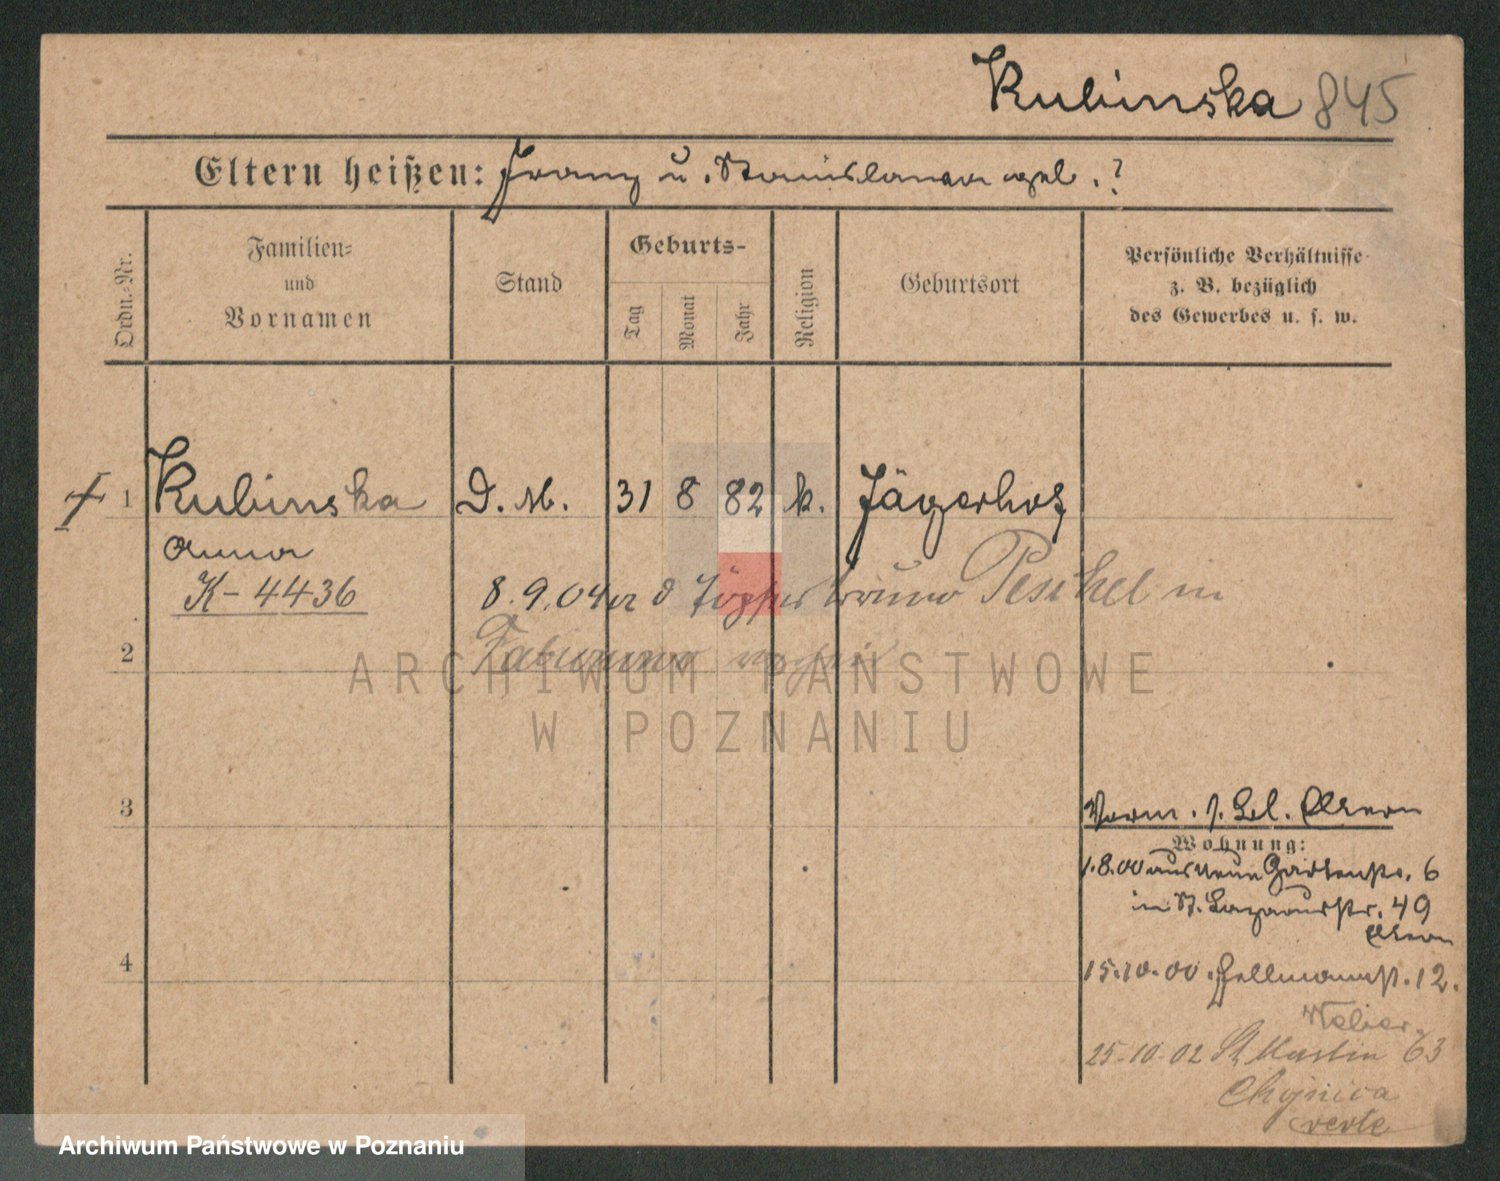 Kubinska 845
Eltern heißen: Franz u. Stanislawa geb. ?
Ordn.-Nr.
Familien-
und
Vornamen
Stand
Geburts-
Tag
Monat
Jahr
Religion
Geburtsort
Persönliche Verhältnisse
z. B. bezüglich
des Gewerbes u. s. w.
1 Kubinska D. M. 31 8 82 k. Jägerhof
Anna
K-4436
8.9.04 Peschel in
2
3
4
Wohnung:
1.8.00 aus Neue Gartenstr. 6
in St. Lazarusstr. 49
15.10.00. Hellmannst. 12.
25-10-02 St Martin 63
Chojnica
verte
ARCHIWUM PAŃSTWOWE
W POZNANIU
Archiwum Państwowe w Poznaniu